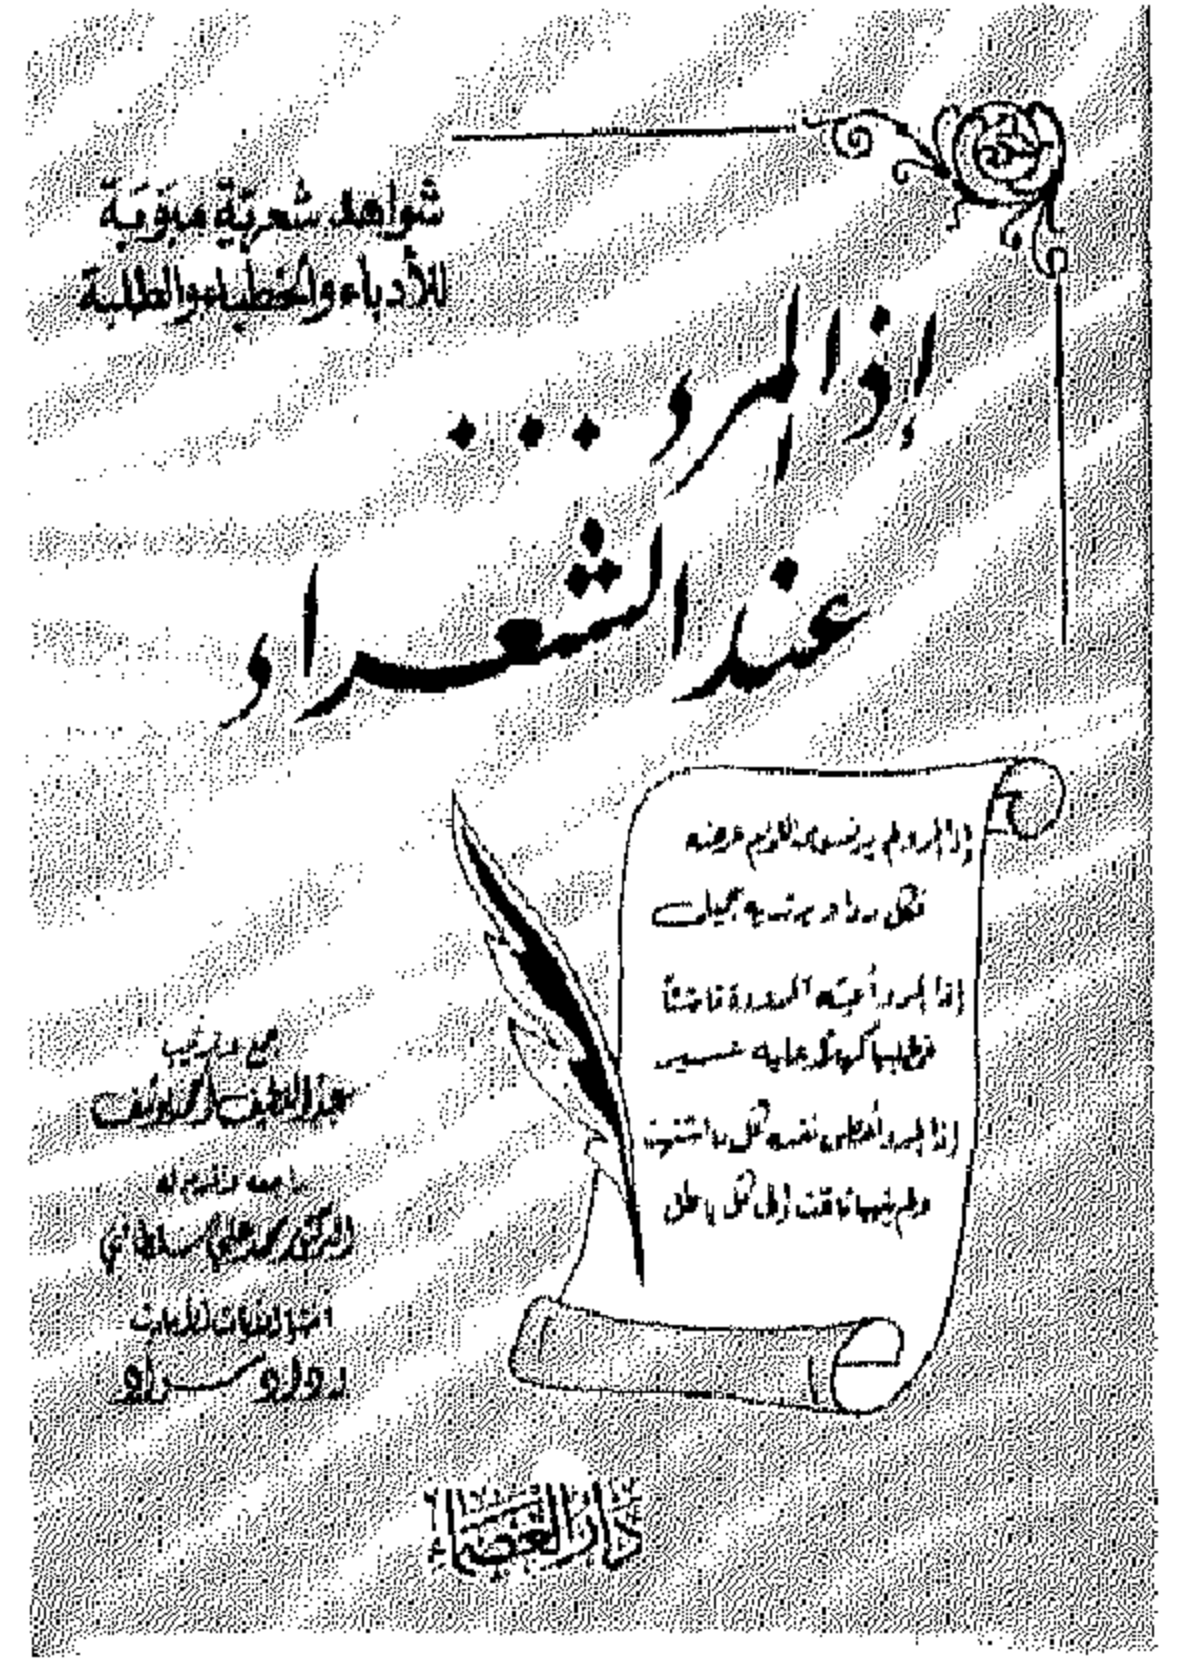 شواهد شعريّة مبوّبة
للأدباء والخطباء والطلبة
إذا المرء ...
عند الشعراء
إذا المرء لم يدنس من اللؤم عرضه
فكل رداء يرتديه جميل
إذا المرء أعيته المروءة ناشئاً
فمطلبها كهلاً عليه عسير
إذا المرء أعطى نفسه كل ما اشتهت
ولم ينهها تاقت إلى كل باطل
جمع وترتيب
عبد اللطيف أحمد
راجعه وقدم له
الدكتور محمد علي سلطاني
دار العصماء